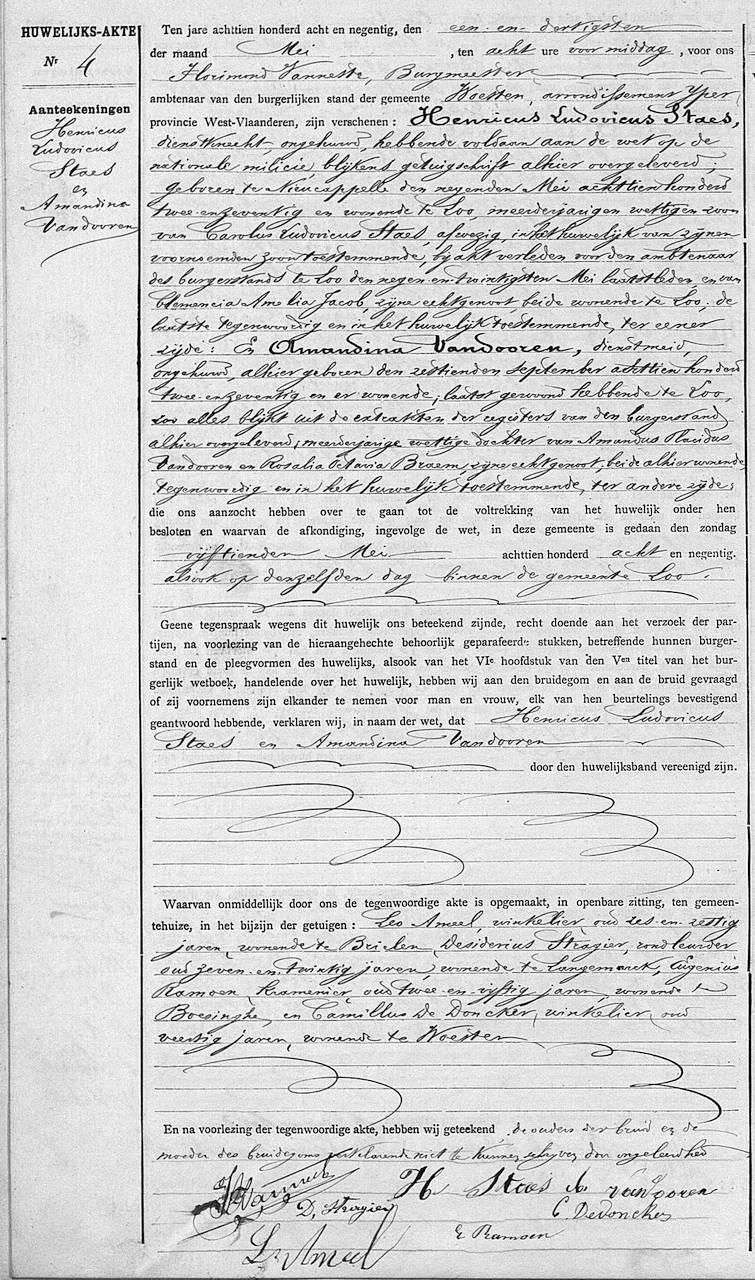 HUWELIJKS-AKTE
Nr 4
Aanteekeningen
Henricus
Ludovicus
Staes
en
Amandina
Vandooren
Ten jare achttien honderd acht en negentig, den een-en-dertigsten
der maand Mei, ten acht ure voor middag, voor ons
Florimond Vanneste, Burgmeester
ambtenaar van den burgerlijken stand der gemeente Woesten, arrondissement Yper
provincie West-Vlaanderen, zijn verschenen: Henricus Ludovicus Staes,
dienstknecht ongehuwd, hebbende voldaan aan de wet op de
nationale milicie, blijkens getuigschrift alhier overgeleverd;
geboren te Nieucappelle den negenden Mei achttien honderd
twee-enzeventig en wonende te Loo, meerderjarigen wettigen zoon
van Carolus Ludovicus Staes, afwezig, in het huwelijk van zijnen
voornoemden zoon toestemmende, bij akt verleden voor den ambtenaar
des burgerstands te Loo den negen-en-twintigsten Mei laatstleden en van
Clemencia Amelia Jacob zijne echtgenoot, beide wonende te Loo; de
laatste tegenwoordig en in het huwelijk toestemmende, ter eener
zijde: En Amandina Vandooren, dienstmeid
ongehuwd, alhier geboren den zestienden september achttien honderd
twee-enzeventig en er wonende, laatst gewoond hebbende te Loo,
zoo alles blijkt uit de extrakten der registers van den burgerstand
alhier overgeleverd; meerderjarige wettige dochter van Amandus Placidus
Vandooren en Rosalia Octavia Braem, zijne echtgenoot, beide alhier wonende
tegenwoordig en in het huwelijk toestemmende, ter andere zijde;
die ons aanzocht hebben over te gaan tot de voltrekking van het huwelijk onder hen
besloten en waarvan de afkondiging, ingevolge de wet, in deze gemeente is gedaan den zondag
vijftienden Mei achttien honderd acht en negentig.
alsook op denzelfden dag binnen de gemeente Loo.
Geene tegenspraak wegens dit huwelijk ons beteekend zijnde, recht doende aan het verzoek der par-
tijen, na voorlezing van de hieraangehechte behoorlijk geparafeerde stukken, betreffende hunnen burger-
stand en de pleegvormen des huwelijks, alsook van het VIe hoofdstuk van den Ven titel van het bur-
gerlijk wetboek, handelende over het huwelijk, hebben wij aan den bruidegom en aan de bruid gevraagd
of zij voornemens zijn elkander te nemen voor man en vrouw, elk van hen beurtelings bevestigend
geantwoord hebbende, verklaren wij, in naam der wet, dat Henricus Ludovicus
Staes en Amandina Vandooren
door den huwelijksband vereenigd zijn.
Waarvan onmiddelijk door ons de tegenwoordige akte is opgemaakt, in openbare zitting, ten gemeen-
tehuize, in het bijzijn der getuigen: Leo Ameel, winkelier, oud zes-en-zestig
jaren, wonende te Brielen, Desiderius Stragier, rondleurder
oud zeven-en-twintig jaren, wonende te Langemarck, Eugenius
Ramoen, Kramenier, oud twee-en-vijftig jaren, wonende te
Boesinghe, en Camillus De Doncker, winkelier, oud
veertig jaren, wonende te Woesten
En na voorlezing der tegenwoordige akte, hebben wij geteekend de ouders der bruid en de
moeder des bruidegoms verklarende niet te kunnen schrijven door ongeleerdheid
H Staes A. vandooren
D. Stragier C. Dedoncker
L. Ameel E Ramoen